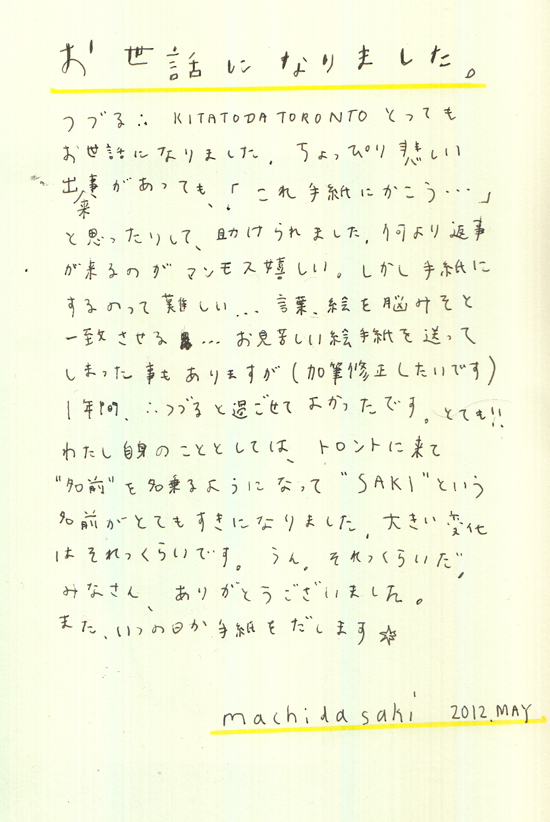 お世話になりました。
つづる∴ KITATODA TORONTO とっても
お世話になりました。ちょっぴり悲しい
出来事があっても、「これ手紙にかこう…」
と思ったりして、助けられました。何より返事
が来るのがマンモス嬉しい。しかし手紙に
するのって難しい… 言葉、絵を脳みそと
一致させる … お見苦しい絵手紙を送って
しまった事もありますが(加筆修正したいです)
1年間、∴つづると過ごせてよかったです。とても!!
わたし自身のこととしては、トロントに来て
"名前"を名乗るようになって"SAKI"という
名前がとてもすきになりました。大きい変化
はそれっくらいです。うん。それっくらいだ。
みなさん、ありがとうございました。
また、いつの日か手紙をだします☆
machida saki 2012.MAY